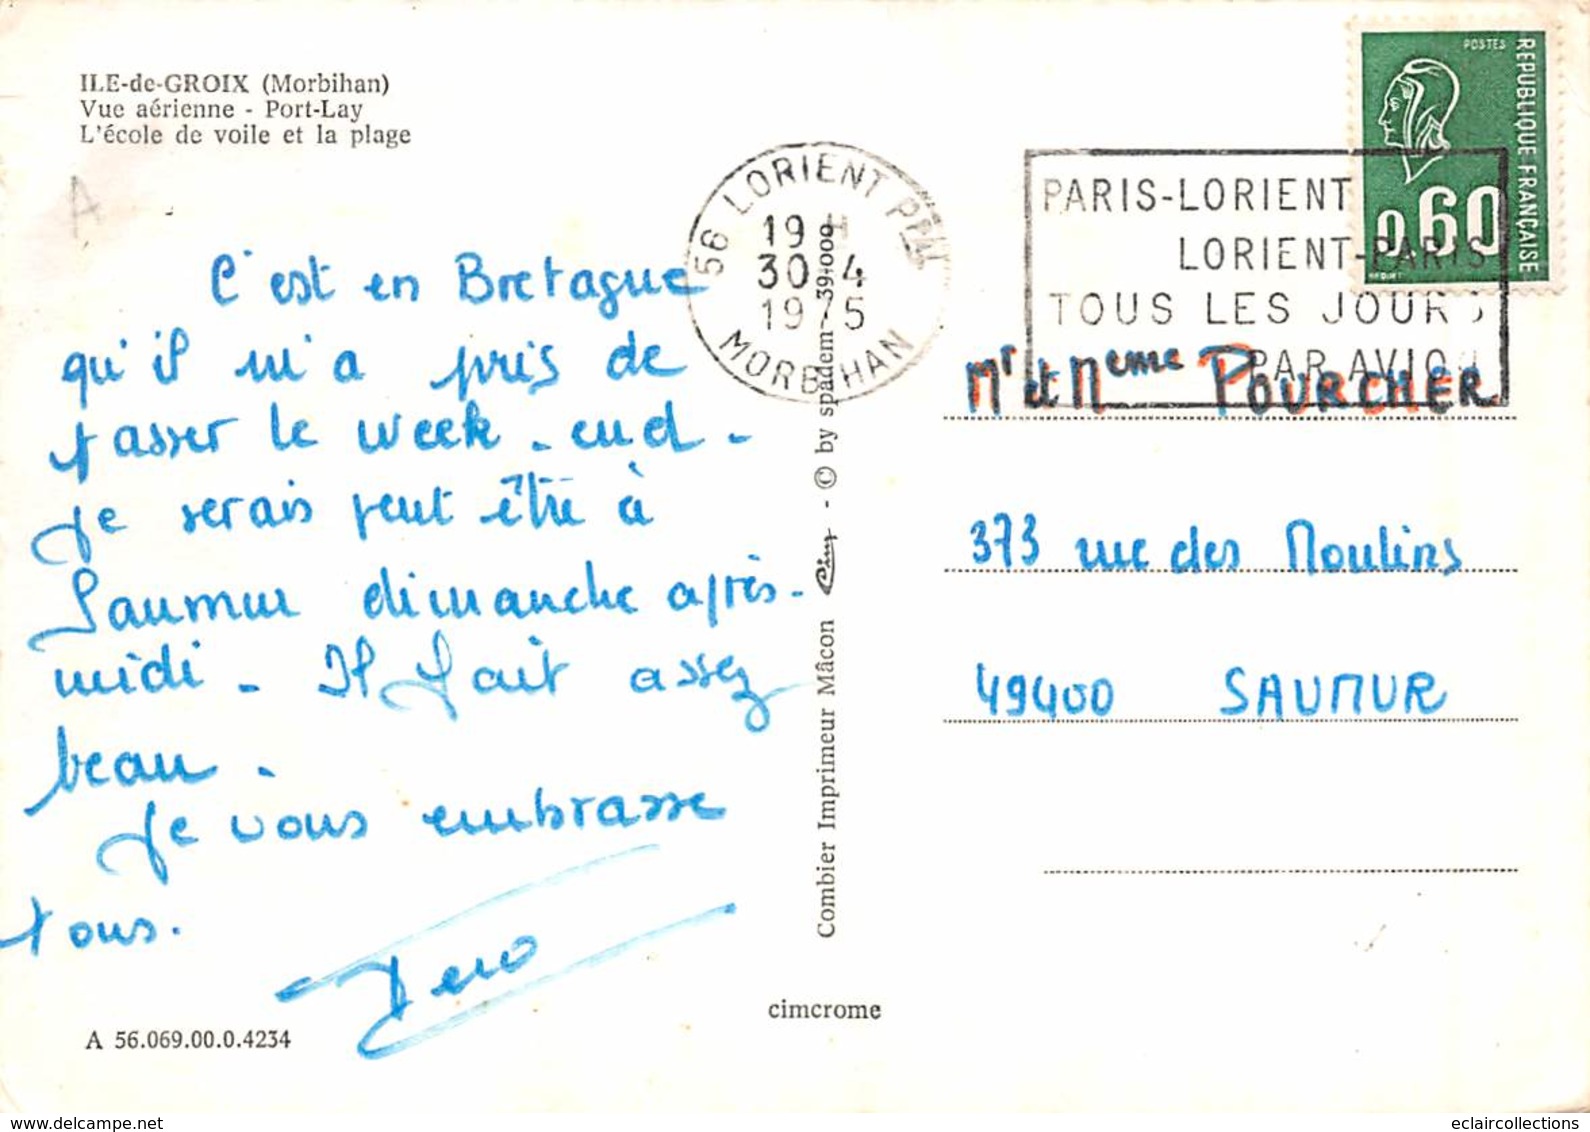 ILE-de-GROIX (Morbihan)
Vue aérienne - Port-Lay
L'école de voile et la plage
A
C'est en Bretagne
qu'il m'a pris de
passer le week-end -
Je serais peut être à
Saumur dimanche après-
midi - Il fait assez
beau -
Je vous embrasse
tous.
A 56.069.00.0.4234
56 LORIENT PPAL
19 H
30-4
1975
MORBIHAN
Combier Imprimeur Mâcon Cim - © by spadem - 39-009
cimcrome
POSTES
REPUBLIQUE FRANÇAISE
0,60
PARIS-LORIENT
LORIENT-PARIS
TOUS LES JOURS
PAR AVION
Mr et Meme POURCHER
373 rue des Moulins
49400 SAUMUR
eclaircollections